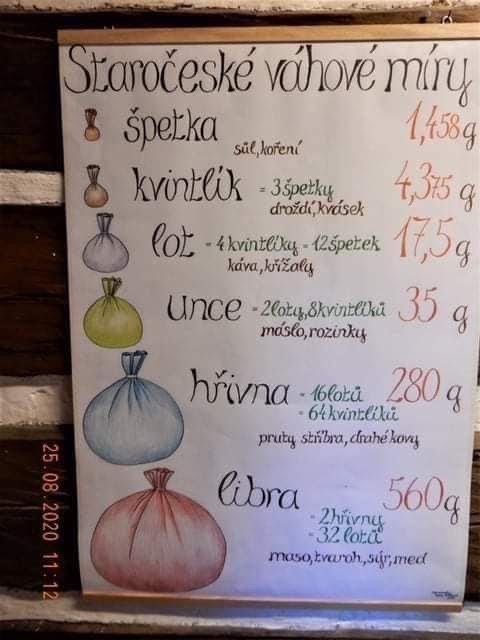 Staročeské váhové míry
špetka 1,458 g
sůl, koření
kvintlík = 3 špetky 4,375 g
droždí, kvásek
lot = 4 kvintlíky = 12 špetek 17,5 g
káva, křížaly
unce = 2 loty, 8 kvintlíků 35 g
máslo, rozinky
hřivna = 16 lotů 280 g
= 64 kvintlíků
pruty stříbra, drahé kovy
libra 560 g
= 2 hřivny
= 32 lotů
maso, tvaroh, sýr, med
25.08.2020 11:12